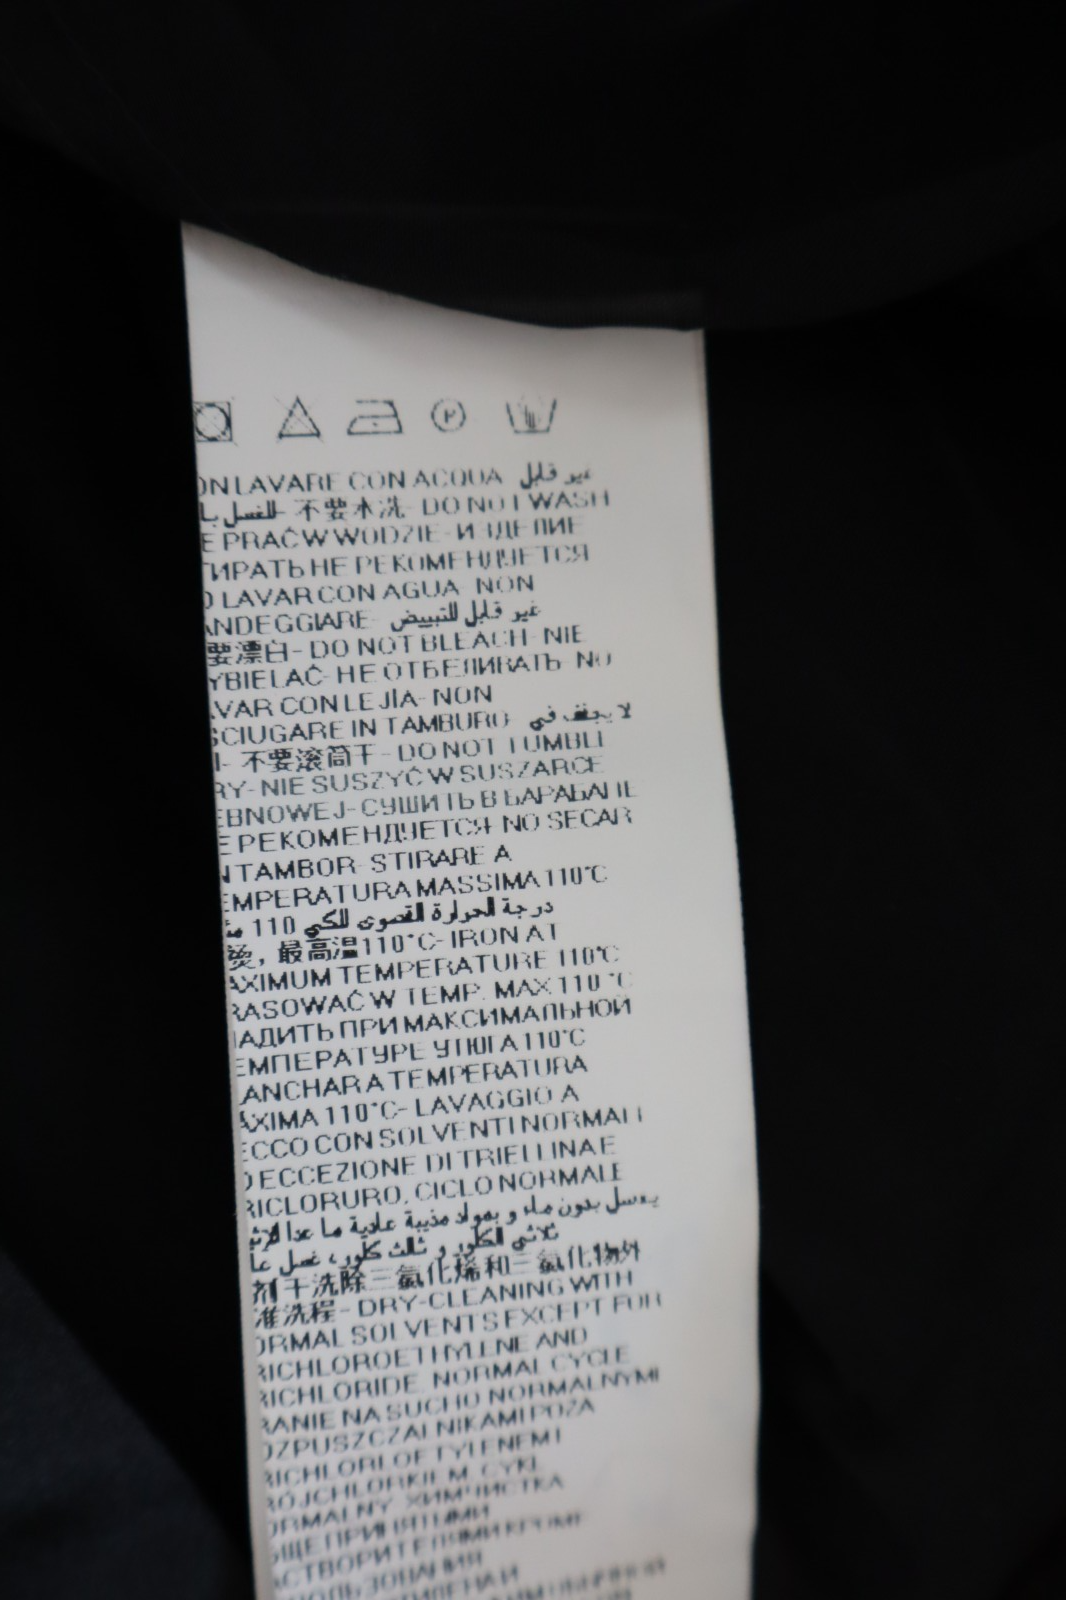 LAVARE CON ACQUA غير قابل
للغسل با - 不要水洗 - DO NOT WASH
PRAĆ W WODZIE - ИЗДЕЛИЕ
НЕ РЕКОМЕНДУЕТСЯ
LAVAR CON AGUA - NON
غير قابل للتبييض
要漂白 - DO NOT BLEACH - NIE
YBIELAĆ - НЕ ОТБЕЛИВАТЬ - NO
CON LEJÍA - NON
SCIUGARE IN TAMBURO - لا يجفف في
不要滚筒干 - DO NOT TUMBLE
RY - NIE SUSZYĆ W SUSZARCE
EBNOWEJ - СУШИТЬ В БАРАБАНЕ
Е РЕКОМЕНДУЕТСЯ - NO SECAR
N TAMBOR - STIRARE A
EMPERATURA MASSIMA 110°C
درجة الحرارة القصوى للكي 110
烫，最高温110°C - IRON AT
AXIMUM TEMPERATURE 110°C
RASOWAĆ W TEMP. MAX 110 °C
ЛАДИТЬ ПРИ МАКСИМАЛЬНОЙ
ЕМПЕРАТУРЕ УТЮГА 110°C
LANCHAR A TEMPERATURA
AXIMA 110°C - LAVAGGIO A
ECCO CON SOLVENTI NORMALI
D ECCEZIONE DI TRIELINA E
RICLORURO, CICLO NORMALE
يغسل بدون ماء و بمواد مذيبة عادية ما عدا
ثلاثي الكلور و ثالث كلور، غسل عا
剂干洗除三氯化烯和三氯化物外
准洗程 - DRY-CLEANING WITH
ORMAL SOLVENTS EXCEPT FOR
RICHLOROETHYLENE AND
RICHLORIDE, NORMAL CYCLE
RANIE NA SUCHO NORMALNYMI
OZPUSZCZALNIKAMI POZA
RICHLOROETYLENEM I
RÓJCHLORKIEM, CYKL
ORMALNY - ХИМЧИСТКА
БЩЕПРИНЯТЫМИ
АСТВОРИТЕЛЯМИ КРОМЕ
СПОЛЬЗОВАНИЯ